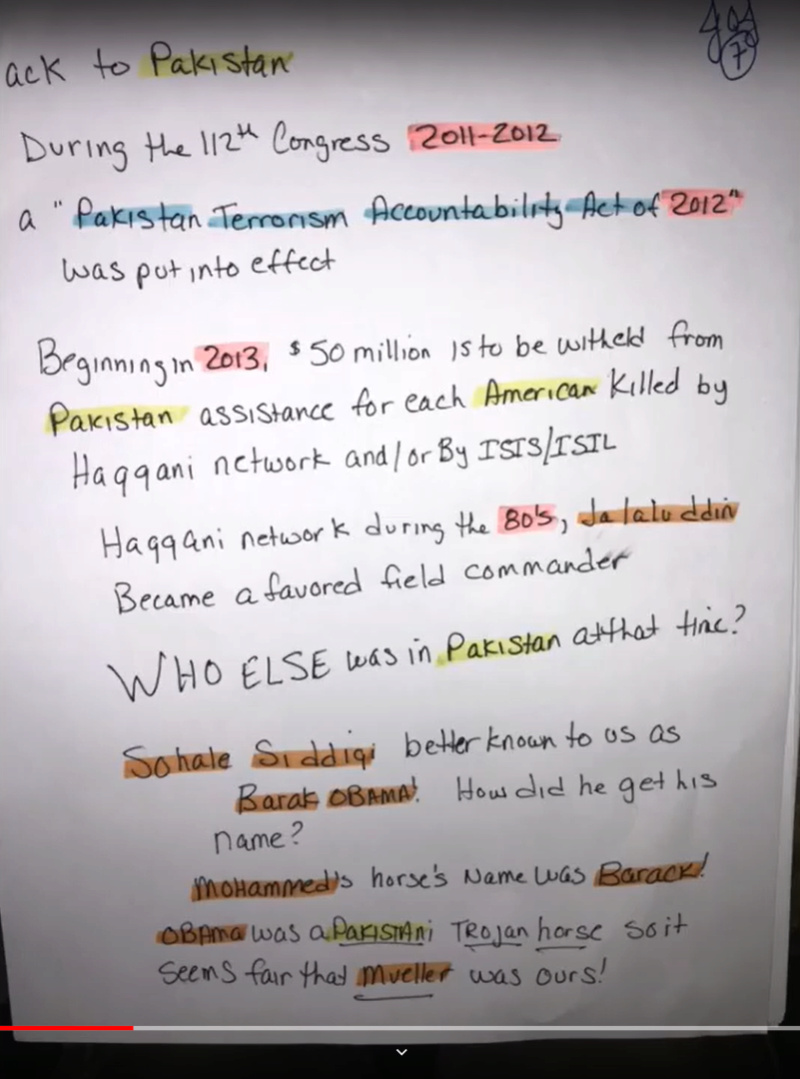 ack to Pakistan
7
During the 112th Congress 2011-2012
a "Pakistan Terrorism Accountability Act of 2012"
was put into effect
Beginning in 2013, $50 million is to be witheld from
Pakistan assistance for each American killed by
Haqqani network and/or By ISIS/ISIL
Haqqani network during the 80's, Jalaluddin
Became a favored field commander
WHO ELSE was in Pakistan at that time?
Sohale Siddiqi better known to us as
Barak OBAMA! How did he get his
name?
MOHAMMED's horse's Name was Barack!
OBAMA was a PAKISTANi TROJan horse so it
seems fair that Mueller was ours!